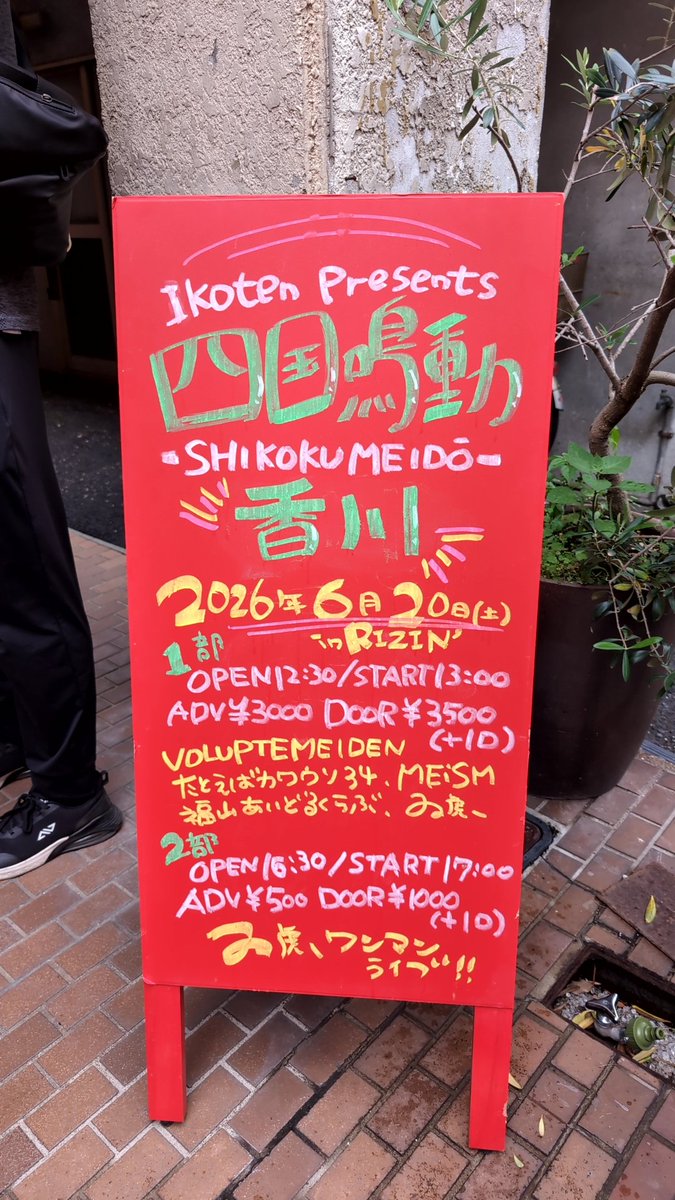 Ikoten Presents
四国鳴動
-SHIKOKUMEIDŌ-
香川
2026年6月20日(土)
in RIZIN'
1部
OPEN12:30/START13:00
ADV¥3000 DOOR¥3500
(+1D)
VOLUPTEMEIDEN
たとえばカワウソ34、MEiSM
福山あいどるくらぶ、
2部
OPEN16:30/START17:00
ADV¥500 DOOR¥1000
(+1D)
ワンマン
ライブ!!